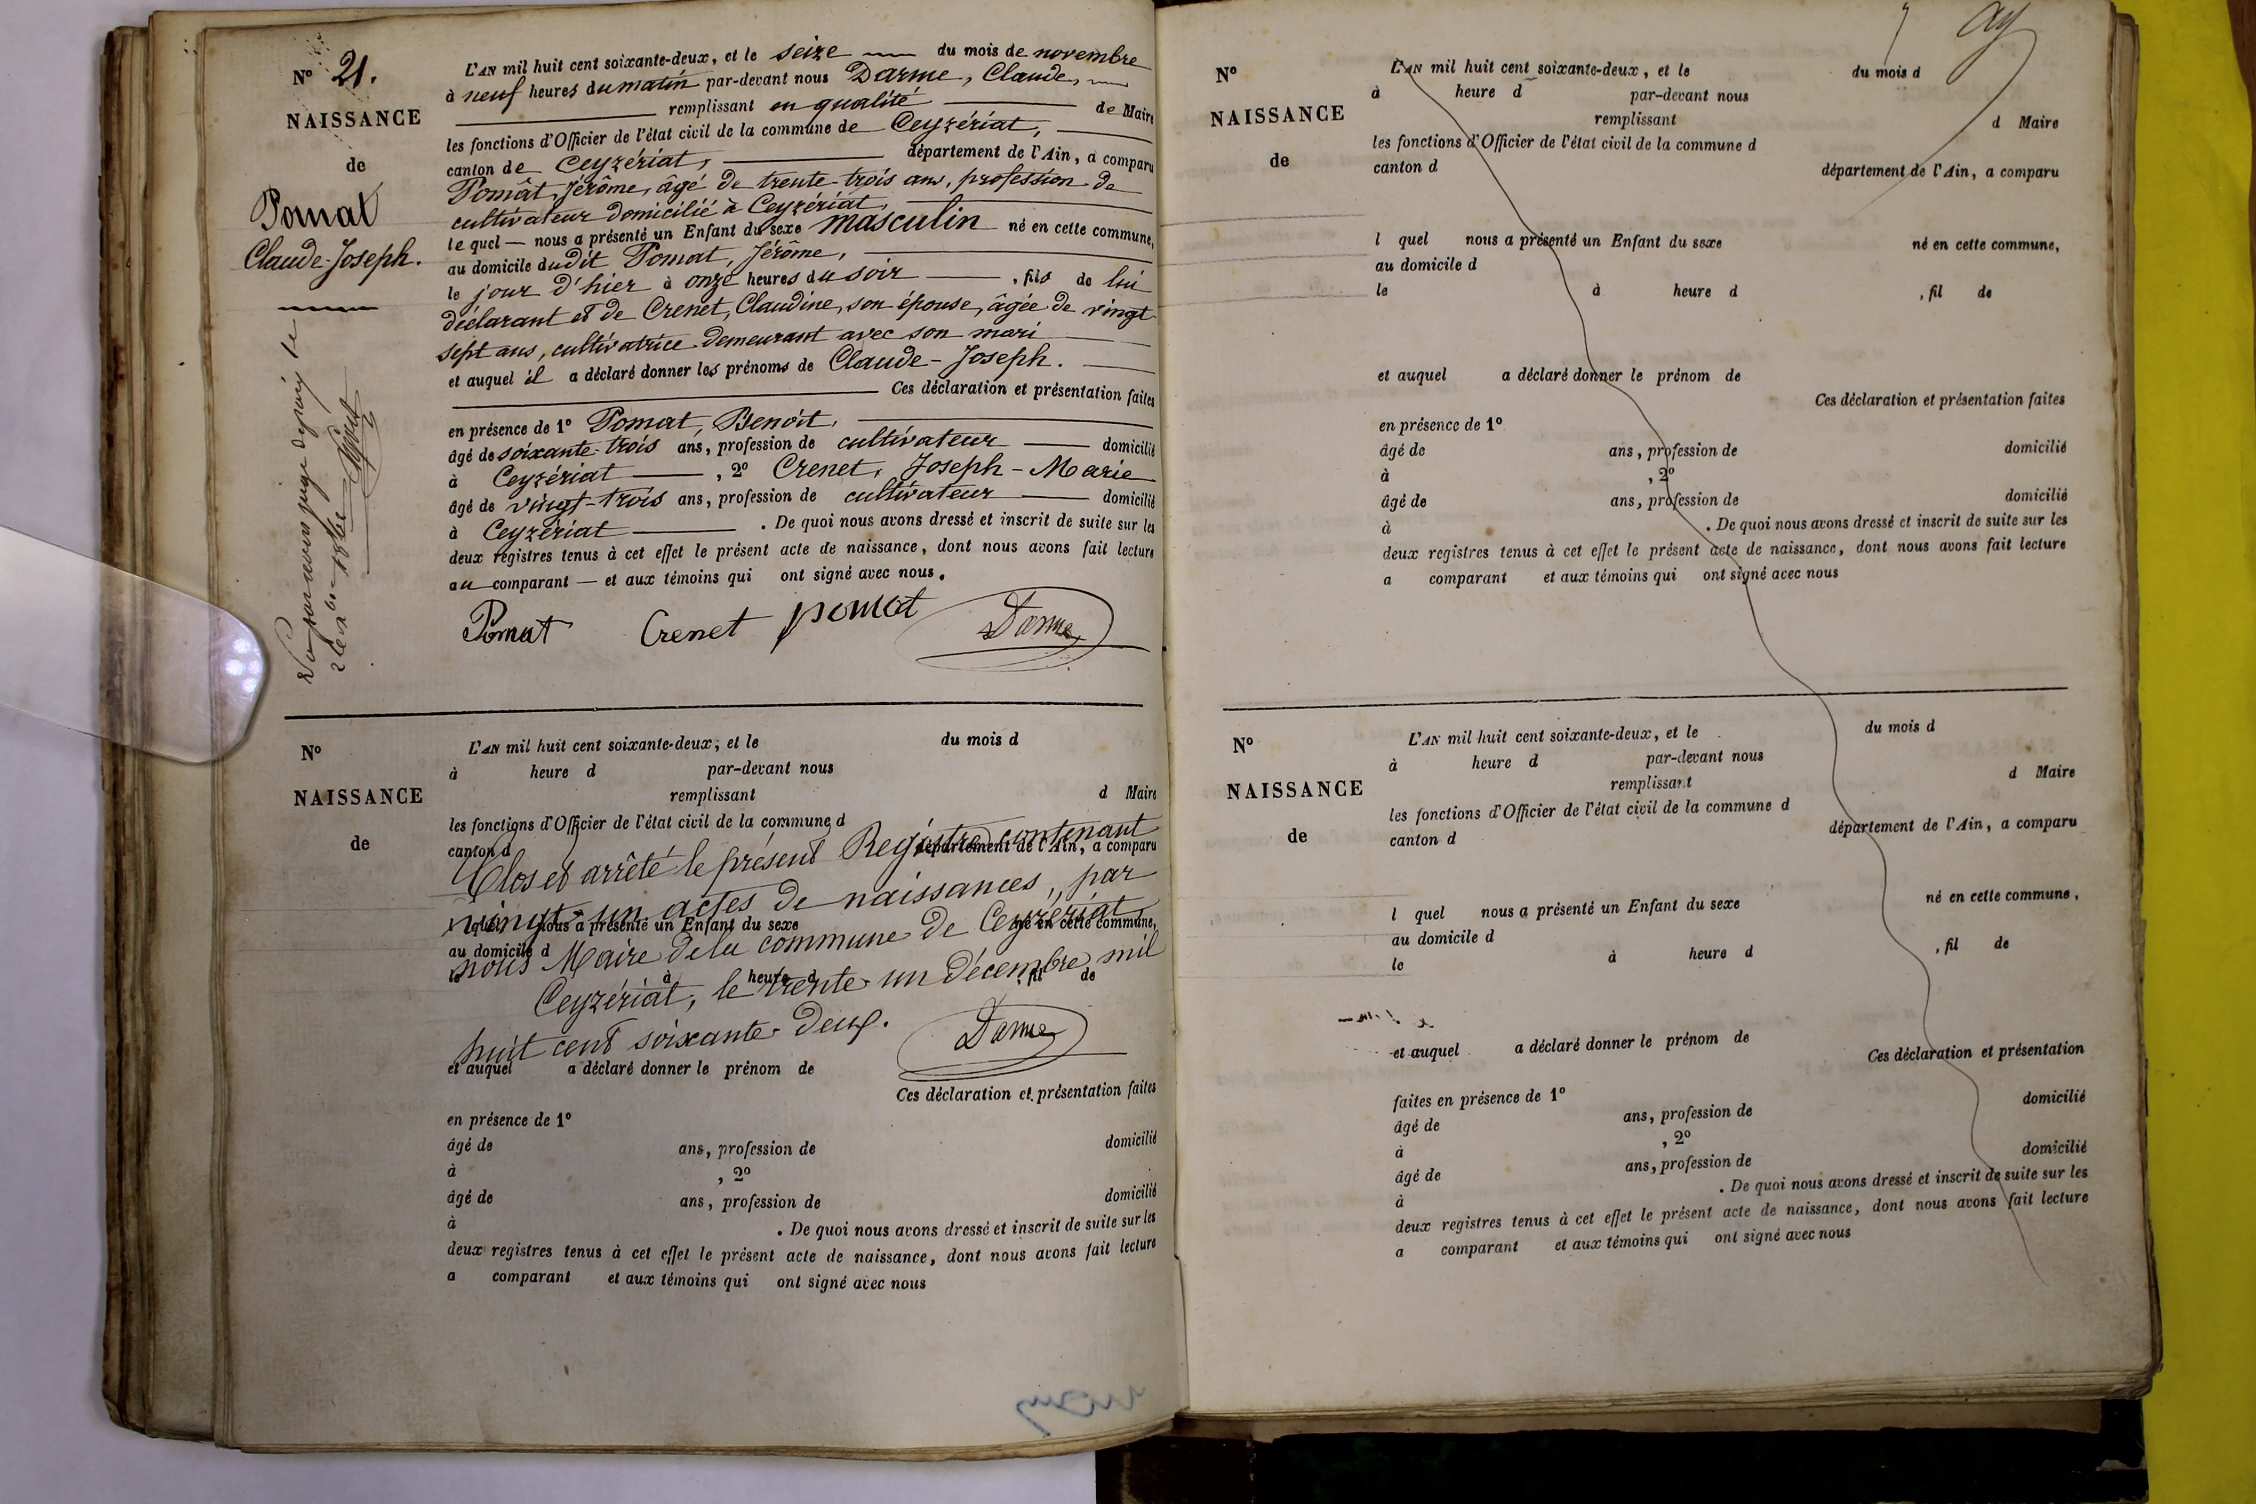 N° 21.
NAISSANCE
de
Pomat
Claude-Joseph.
L'AN mil huit cent soixante-deux, et le seize du mois de novembre
à neuf heures du matin par-devant nous Darme, Claude,
remplissant en qualité de Maire
les fonctions d'Officier de l'état civil de la commune de Ceyzériat,
canton de Ceyzériat, département de l'Ain, a comparu
Pomat, Jérôme, âgé de trente-trois ans, profession de
cultivateur domicilié à Ceyzériat,
lequel — nous a présenté un Enfant du sexe masculin né en cette commune,
au domicile dudit Pomat, Jérôme,
le jour d'hier à onze heures du soir, fils de lui
déclarant et de Crenet, Claudine, son épouse, âgée de vingt-
sept ans, cultivatrice demeurant avec son mari
et auquel il a déclaré donner les prénoms de Claude-Joseph.
Ces déclaration et présentation faites
en présence de 1° Pomat, Benoit,
âgé de soixante-trois ans, profession de cultivateur domicilié
à Ceyzériat, 2° Crenet, Joseph-Marie
âgé de vingt-trois ans, profession de cultivateur domicilié
à Ceyzériat. De quoi nous avons dressé et inscrit de suite sur les
deux registres tenus à cet effet le présent acte de naissance, dont nous avons fait lecture
au comparant — et aux témoins qui ont signé avec nous.
Pomat Crenet pomat Darme
N°
NAISSANCE
de
L'AN mil huit cent soixante-deux, et le du mois d
à heure d par-devant nous
remplissant d Maire
les fonctions d'Officier de l'état civil de la commune d
canton d département de l'Ain, a comparu
Clos et arrêté le présent Registre contenant
vingt-un actes de naissances, par
l quel nous a présenté un Enfant du sexe né en cette commune,
au domicile d
nous Maire de la commune de Ceyzériat
le à heure d , fil de
Ceyzériat, le trente-un Décembre mil
huit cent soixante-deux.
Darme
et auquel a déclaré donner le prénom de
Ces déclaration et présentation faites
en présence de 1°
âgé de ans, profession de domicilié
à , 2°
âgé de ans, profession de domicilié
à . De quoi nous avons dressé et inscrit de suite sur les
deux registres tenus à cet effet le présent acte de naissance, dont nous avons fait lecture
a comparant et aux témoins qui ont signé avec nous
N°
NAISSANCE
de
L'AN mil huit cent soixante-deux, et le du mois d
à heure d par-devant nous
remplissant d Maire
les fonctions d'Officier de l'état civil de la commune d
canton d département de l'Ain, a comparu
l quel nous a présenté un Enfant du sexe né en cette commune,
au domicile d
le à heure d , fil de
et auquel a déclaré donner le prénom de
Ces déclaration et présentation faites
en présence de 1°
âgé de ans, profession de domicilié
à , 2°
âgé de ans, profession de domicilié
à . De quoi nous avons dressé et inscrit de suite sur les
deux registres tenus à cet effet le présent acte de naissance, dont nous avons fait lecture
a comparant et aux témoins qui ont signé avec nous
N°
NAISSANCE
de
L'AN mil huit cent soixante-deux, et le du mois d
à heure d par-devant nous
remplissant d Maire
les fonctions d'Officier de l'état civil de la commune d
canton d département de l'Ain, a comparu
l quel nous a présenté un Enfant du sexe né en cette commune,
au domicile d
le à heure d , fil de
et auquel a déclaré donner le prénom de
Ces déclaration et présentation
faites en présence de 1°
âgé de ans, profession de domicilié
à , 2°
âgé de ans, profession de domicilié
à . De quoi nous avons dressé et inscrit de suite sur les
deux registres tenus à cet effet le présent acte de naissance, dont nous avons fait lecture
a comparant et aux témoins qui ont signé avec nous